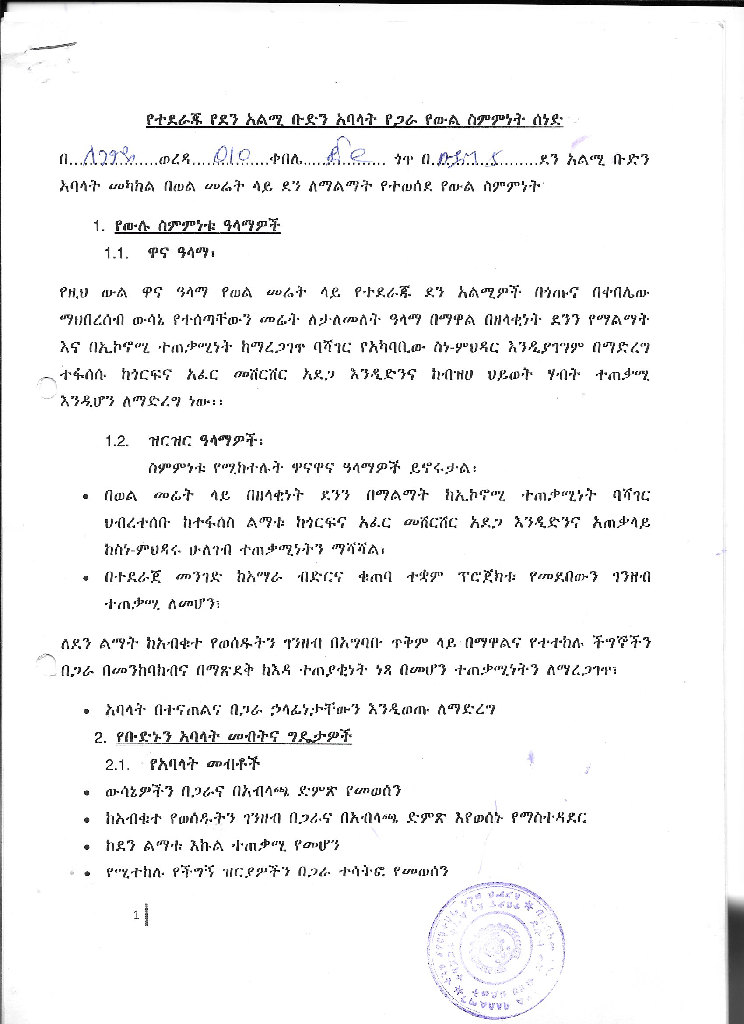 የተደራጁ የደን አልሚ ቡድን አባላት የጋራ የውል ስምምነት ሰነድ
በ.......ወረዳ.......ቀበሌ....... ጎጥ በ.......ደን አልሚ ቡድን
አባላት መካከል በወል መሬት ላይ ደን ለማልማት የተወሰደ የውል ስምምነት
1. የውሉ ስምምነቱ ዓላማዎች
1.1. ዋና ዓላማ፡
የዚህ ውል ዋና ዓላማ የወል መሬት ላይ የተደራጁ ደን አልሚዎች በጎጡና በቀበሌው
ማህበረሰብ ውሳኔ የተሰጣቸውን መሬት ለታለመለት ዓላማ በማዋል በዘላቂነት ደንን የማልማት
እና በኢኮኖሚ ተጠቃሚነት ከማረጋገጥ ባሻገር የአካባቢው ስነ-ምህዳር እንዲያገግም በማድረግ
ተፋሰሱ ከጎርፍና አፈር መሸርሸር አደጋ እንዲድንና ከብዝሀ ህይወት ሃብት ተጠቃሚ
እንዲሆን ለማድረግ ነው፡፡
1.2. ዝርዝር ዓላማዎች፡
ስምምነቱ የሚከተሉት ዋናዋና ዓላማዎች ይኖሩታል፡
• በወል መሬት ላይ በዘላቂነት ደንን በማልማት ከኢኮኖሚ ተጠቃሚነት ባሻገር
ህብረተሰቡ ከተፋሰስ ልማቱ ከጎርፍና አፈር መሸርሸር አደጋ እንዲድንና አጠቃላይ
ከስነ-ምህዳሩ ሁለገብ ተጠቃሚነትን ማሻሻል፡
• በተደራጀ መንገድ ከአማራ ብድርና ቁጠባ ተቋም ፕሮጀክቱ የመደበውን ገንዘብ
ተጠቃሚ ለመሆን፡
ለደን ልማት ከአብቁተ የወሰዱትን ገንዘብ በአግባቡ ጥቅም ላይ በማዋልና የተተከሉ ችግኞችን
በጋራ በመንከባከብና በማጽደቅ ከእዳ ተጠያቂነት ነጻ በመሆን ተጠቃሚነትን ለማረጋገጥ፡
• አባላት በተናጠልና በጋራ ኃላፊነታቸውን እንዲወጡ ለማድረግ
2. የቡድኑን አባላት መብትና ግዴታዎች
2.1. የአባላት መብቶች
• ውሳኔዎችን በጋራና በአብላጫ ድምጽ የመወሰን
• ከአብቁተ የወሰዱትን ገንዘብ በጋራና በአብላጫ ድምጽ እየወሰኑ የማስተዳደር
• ከደን ልማቱ እኩል ተጠቃሚ የመሆን
• የሚተከሉ የችግኝ ዝርያዎችን በጋራ ተሳትፎ የመወሰን
1